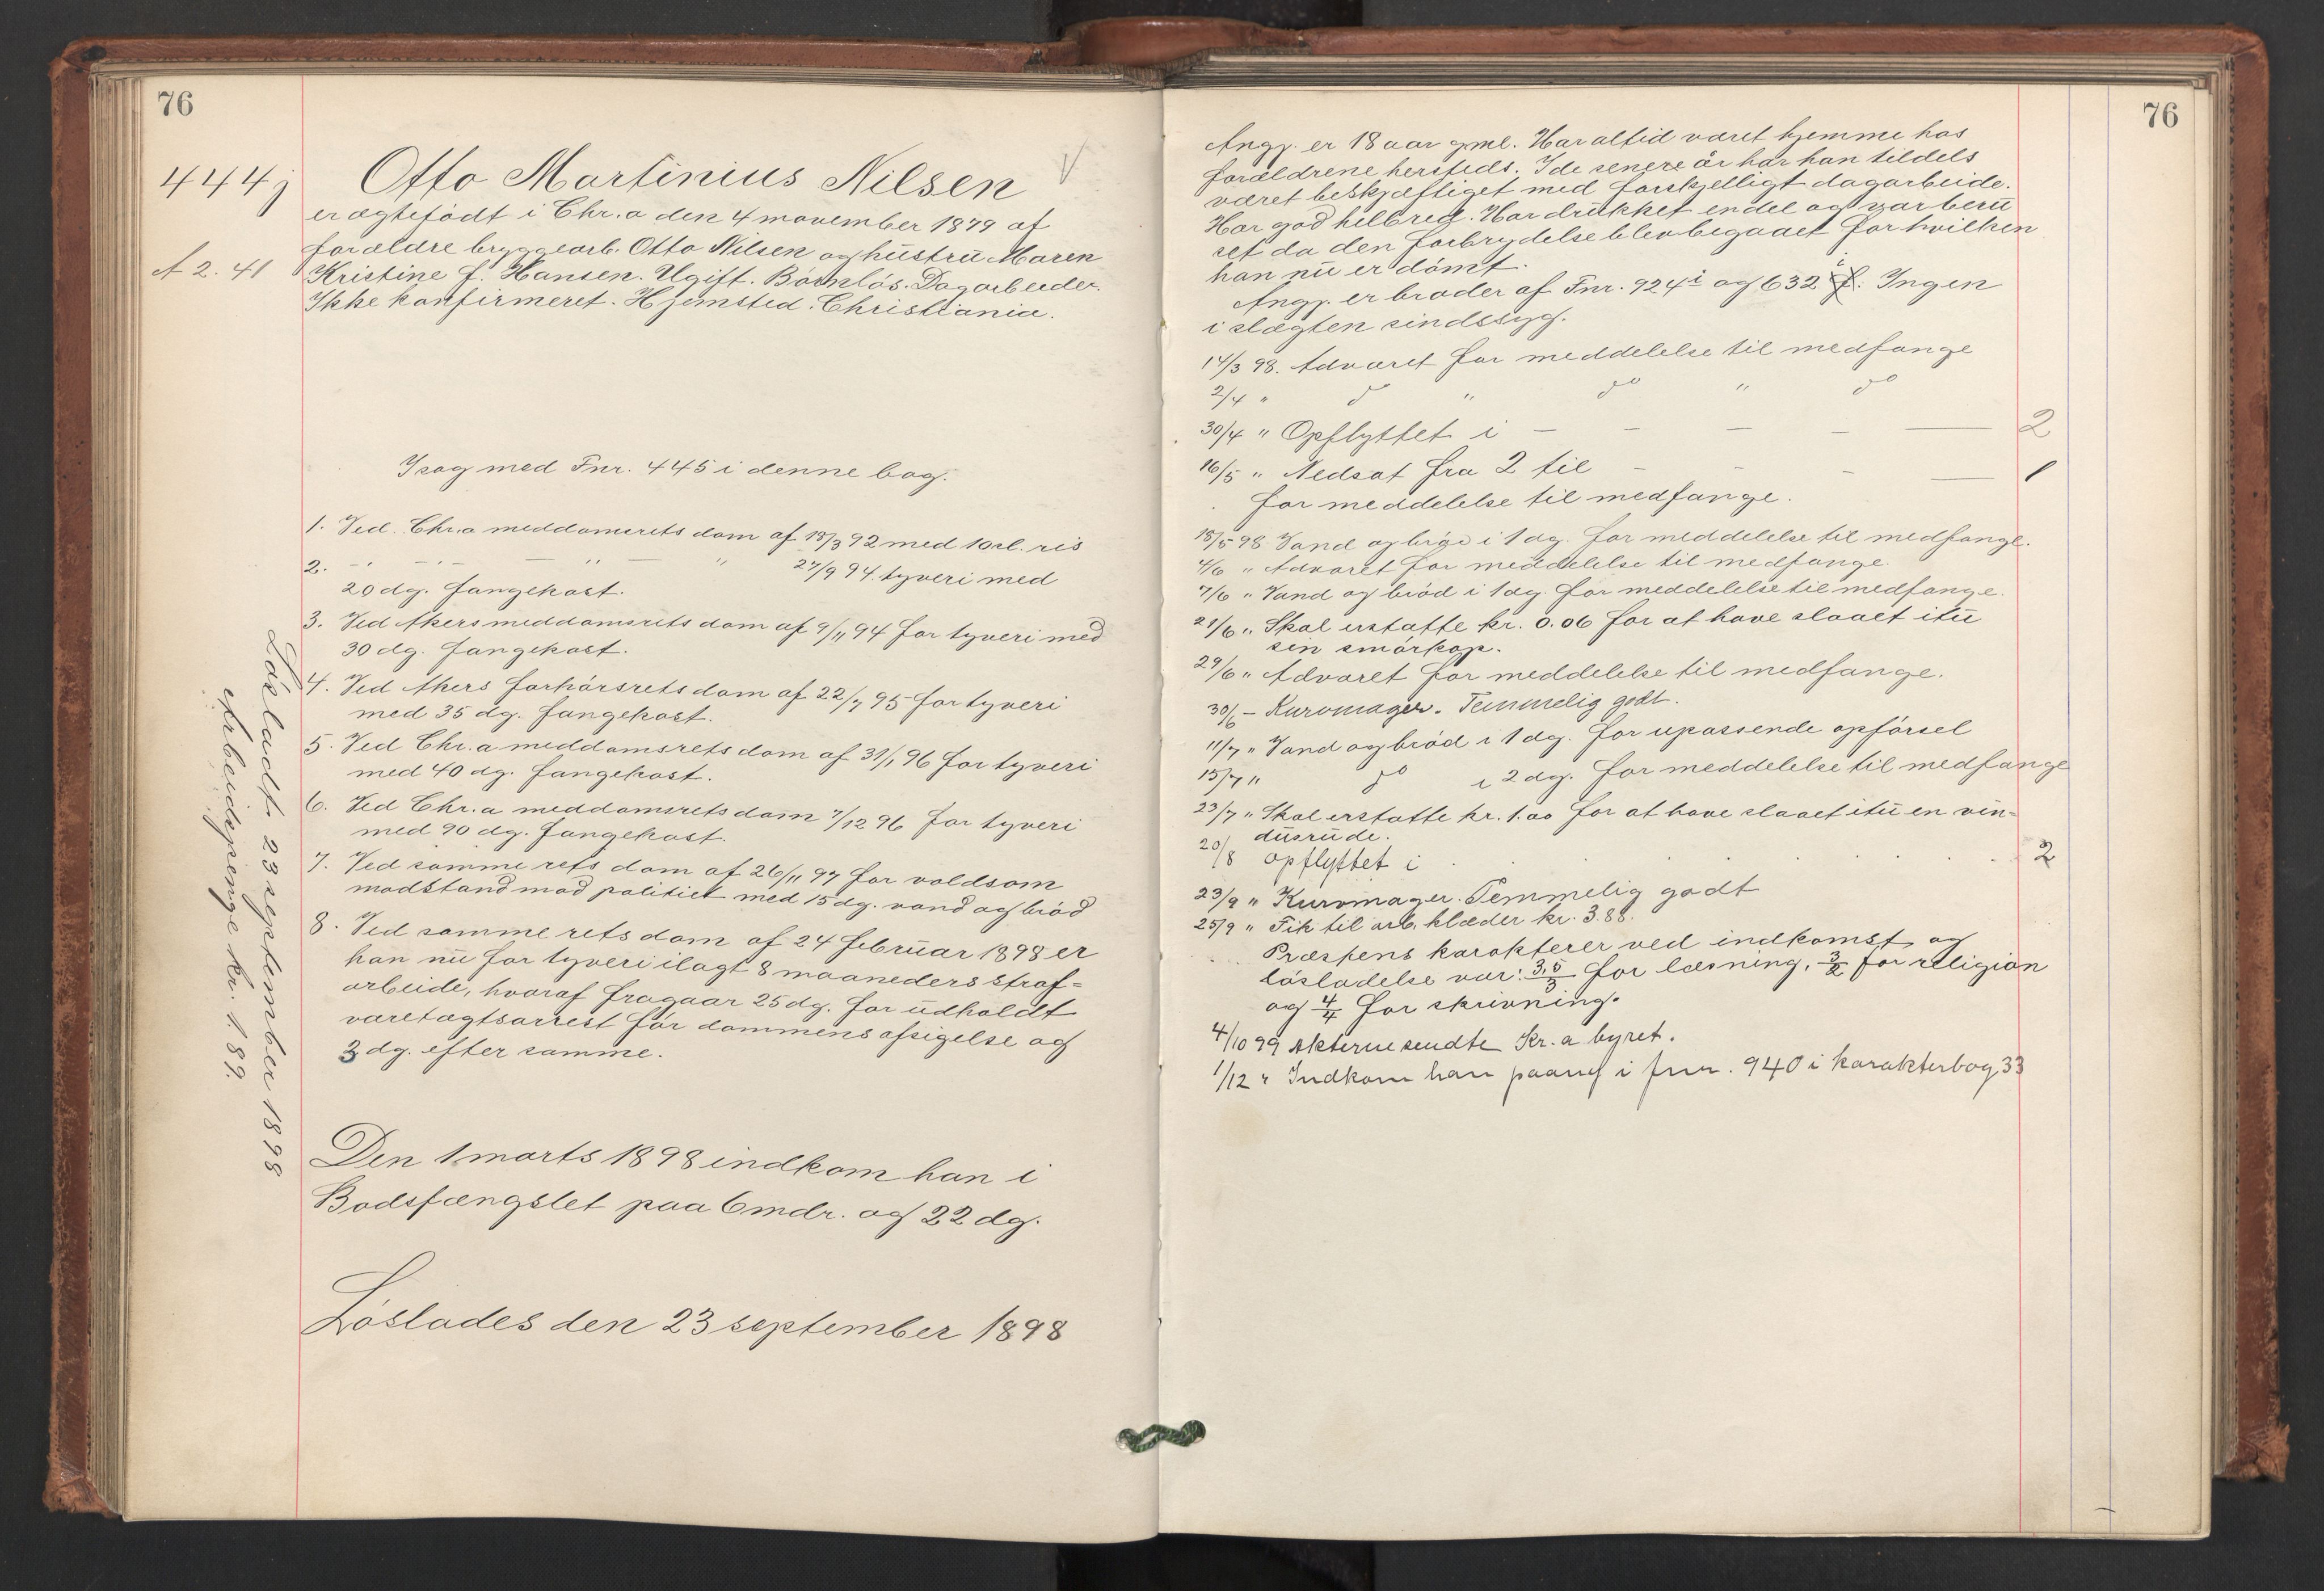 76
444 j
A 2. 41
Otto Martinius Nilsen
er ægtefödt i Chr.a den 4 november 1879 af
forældre bryggearb. Otto Nilsen og hustru Maren
Kristine f. Hansen. Ugift. Börnlös. Dagarbeider.
Ikke konfirmeret. Hjemsted. Christiania.
I sag med Fnr. 445 i denne bog.
1. Ved Chr.a meddomsrets dom af 18/3 92 med 10 sl. ris
2. " " " 27/9 94. tyveri med
20 dg. fangekost.
3. Ved Akers meddomsrets dom af 9/11 94 for tyveri med
30 dg. fangekost.
4. Ved Akers forhörsrets dom af 22/7 95 for tyveri
med 35 dg. fangekost.
5. Ved Chr.a meddomsrets dom af 31/1 96 for tyveri
med 40 dg. fangekost.
6. Ved Chr.a meddomsrets dom 7/12 96 for tyveri
med 90 dg. fangekost.
7. Ved samme rets dom af 26/11 97 for voldsom
modstand mod politiet med 15 dg. vand og bröd
8. Ved samme rets dom af 24 februar 1898 er
han nu for tyveri ilagt 8 maaneders straf=
arbeide, hvoraf fragaar 25 dg. for udholdt
varetægtsarrest för dommens afsigelse og
3 dg. efter samme.
Den 1 marts 1898 indkom han i
Bodsfængslet paa 6 mdr. og 22 dg.
Löslades den 23 september 1898
Lösladt 23 september 1898
Arbeidspenge kr. 1.89.
76
Angj. er 18 aar gml. Har altid været hjemme hos
forældrene hersteds. I de senere år har han tildels
været beskjæftiget med forskjelligt dagarbeide.
Har god helbred. Har drukket endel og var beru
set da den forbrydelse blev begaaet for hvilken
han nu er dömt.
Angj. er broder af Fnr. 924 i og 632 i f. Ingen
i slægten sindssyg.
14/3 98. Advaret for meddelelse til medfange
2/4 " do " do " do
30/4 " Opflyttet i — — — — — 2
16/5 " Nedsat fra 2 til — — — — 1
for meddelelse til medfange.
18/5 98 Vand og bröd i 1 dg. for meddelelse til medfange.
4/6 " Advaret for meddelelse til medfange.
7/6 " Vand og bröd i 1 dg. for meddelelse til medfange.
21/6 " Skal erstatte kr. 0.06 for at have slaaet itu
sin smörkop.
29/6 " Advaret for meddelelse til medfange.
30/6 — Kurvmager. Temmelig godt.
11/7 " Vand og bröd i 1 dg. for upassende opförsel
15/7 " do i 2 dg. for meddelelse til medfange
23/7 " Skal erstatte kr. 1.00 for at have slaaet itu en vin=
dusrude.
20/8 opflyttet i . . . . . . 2
23/9 " Kurvmager. Temmelig godt
25/9 " Fik til arb. klæder kr. 3.88.
Præstens karakterer ved indkomst og
lösladelse var: 3,5/3 for læsning, 3/2 for religion
og 4/4 for skrivning.
4/10 99 Akterne sendte Kr.a byret.
1/12 " Indkom han paany i fnr. 940 i karakterbog 33